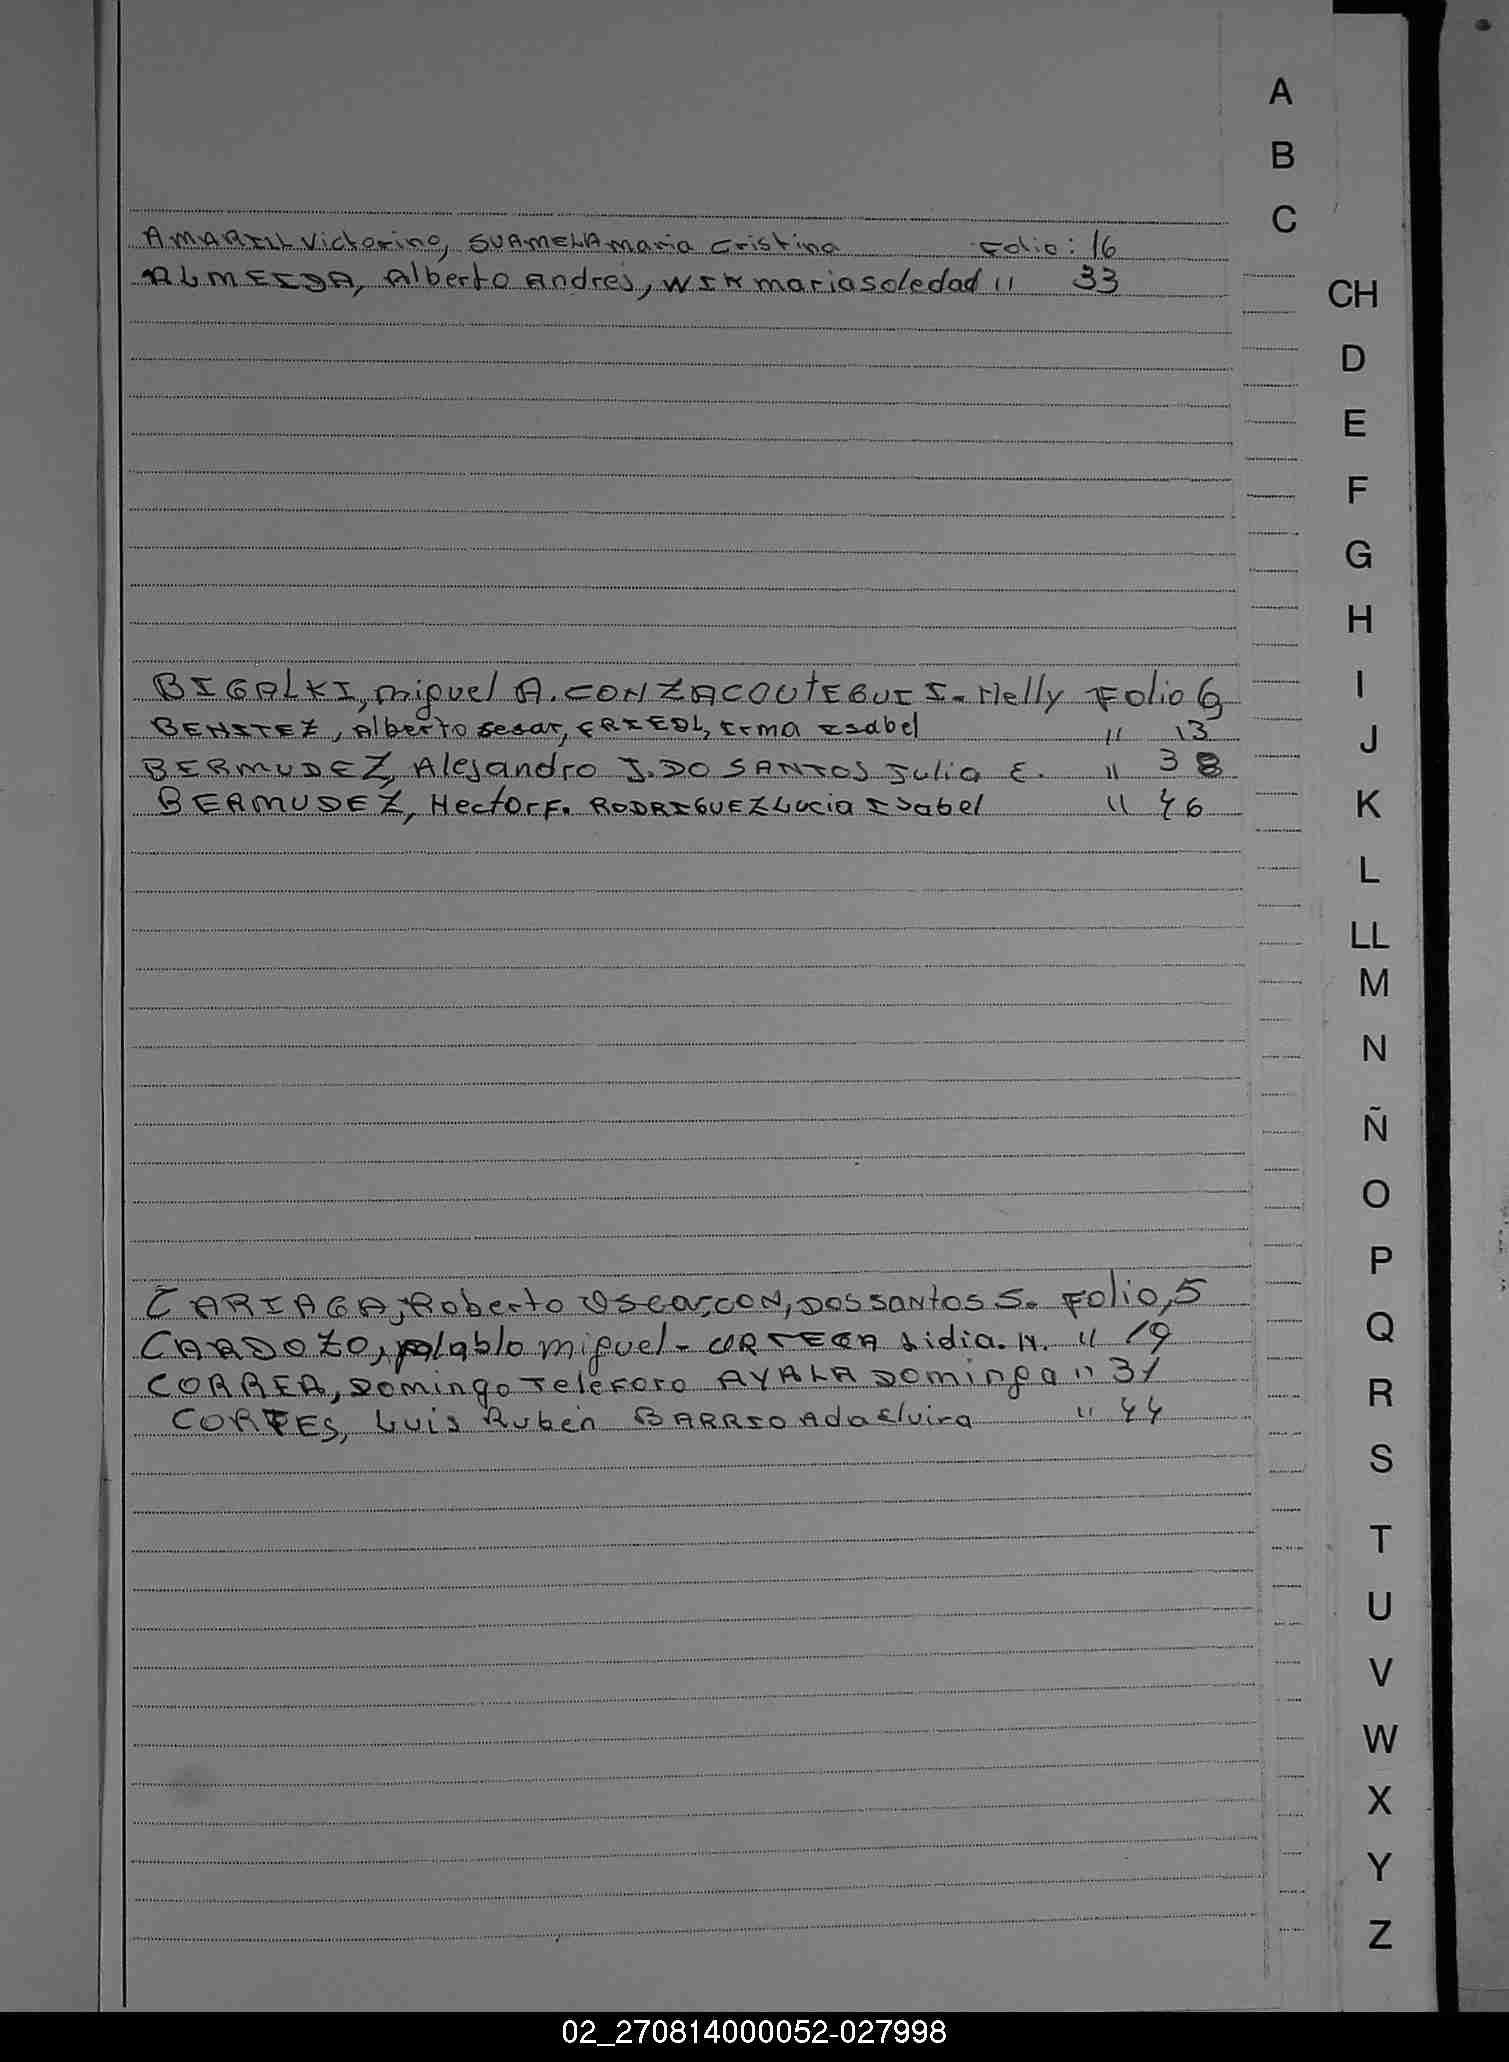 A
B
C
AMARILL Victorino, SUAMELA maria Cristina Folio: 16
ALMEIDA, Alberto Andres, WIK maria soledad " 33
CH
D
E
F
G
H
BIGALKI, miguel A. CON ZACOUTEGUI I- Nelly Folio 6
I
BENITEZ, Alberto sesar, FRIEDL, Irma Isabel " 13
J
BERMUDEZ, Alejandro J. DO SANTOS Julia E. " 38
BERMUDEZ, Hector F. RODRIGUEZ Lucia Isabel " 46
K
L
LL
M
N
Ñ
O
P
CARIAGA, Roberto Oscar, CON, DOS SANTOS S. Folio, 5
Q
CARDOZO, pablo miguel - URTEGA Lidia. N. " 19
CORREA, Domingo Telesforo AYALA Dominga " 31
R
CORTES, Luis Ruben BARRIO Ada Elvira " 44
S
T
U
V
W
X
Y
Z
02_270814000052-027998